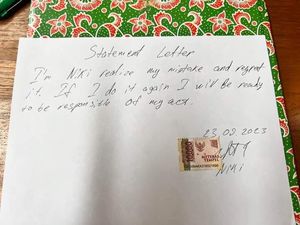 Statement Letter
I'm Niki realize my mistake and regret
it. If I do it again I will be ready
to be responsible of my act.
23.02.2023
10000
METERAI
TEMPEL
Niki